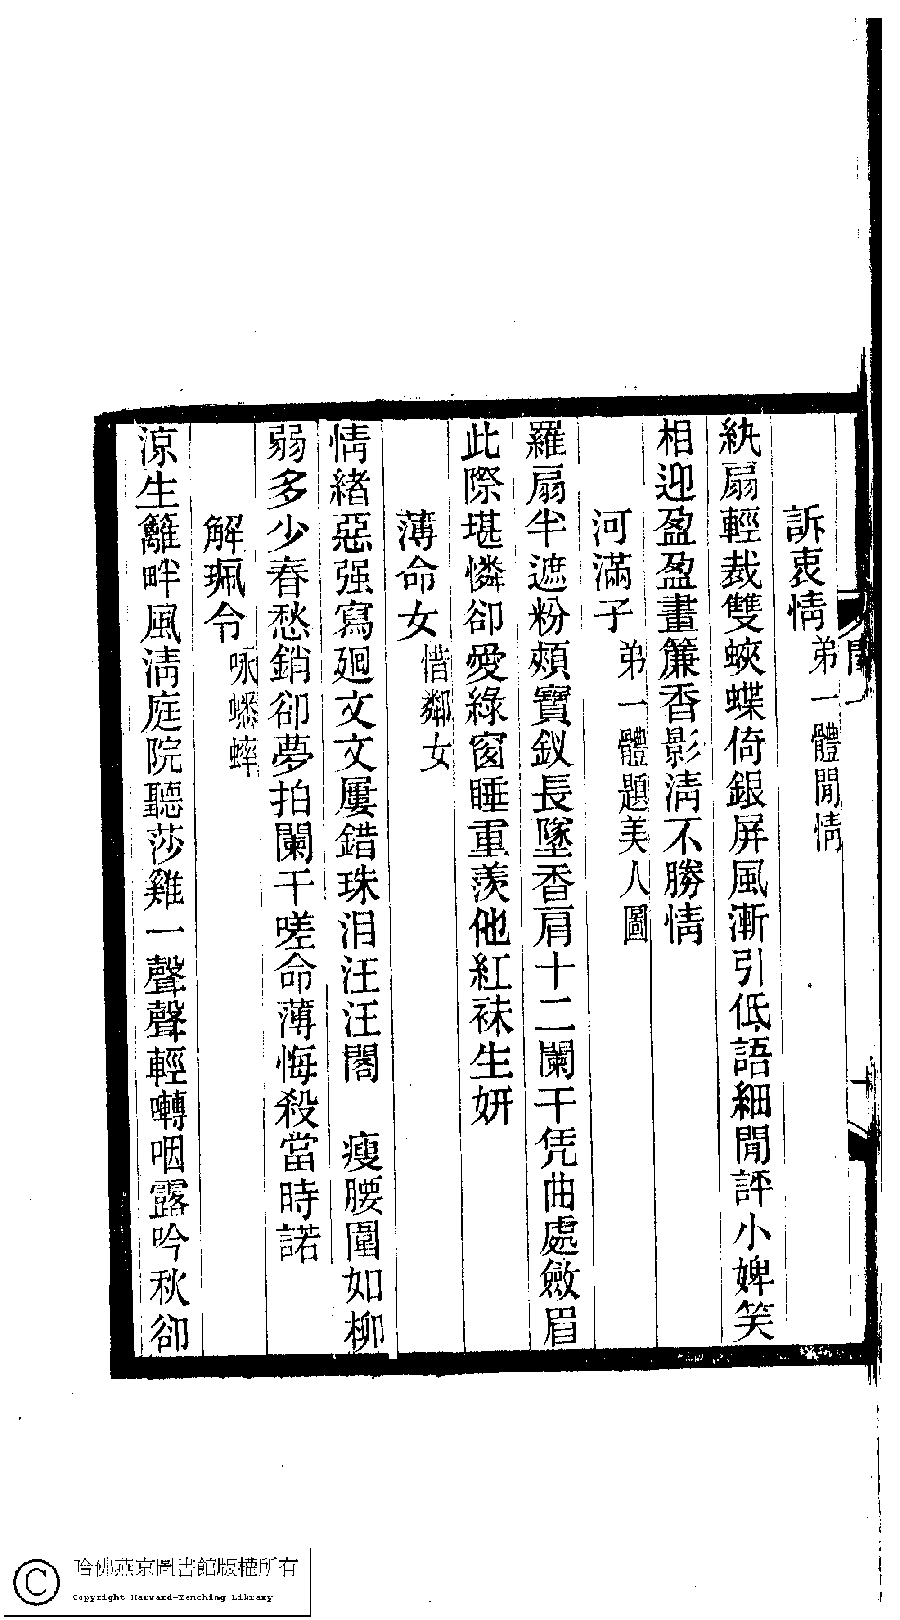 訴衷情 弟一體閒情
紈扇輕裁雙蛺蝶倚銀屏風漸引低語細閒評小婢笑
相迎盈盈畫簾香影淸不勝情
河滿子 弟一體題美人圖
羅扇半遮粉頰寶釵長墜香肩十二闌干凭曲處斂眉
此際堪憐卻愛綠窗睡重羨他紅袜生妍
薄命女 惜鄰女
情緒惡强寫廻文文屢錯珠泪汪汪閣　瘦腰圍如柳
弱多少春愁銷卻夢拍闌干嗟命薄悔殺當時諾
解珮令 咏蟋蟀
涼生籬畔風淸庭院聽莎雞一聲聲輕囀咽露吟秋卻
哈佛燕京圖書館版權所有
Copyright Harvard-Yenching Library